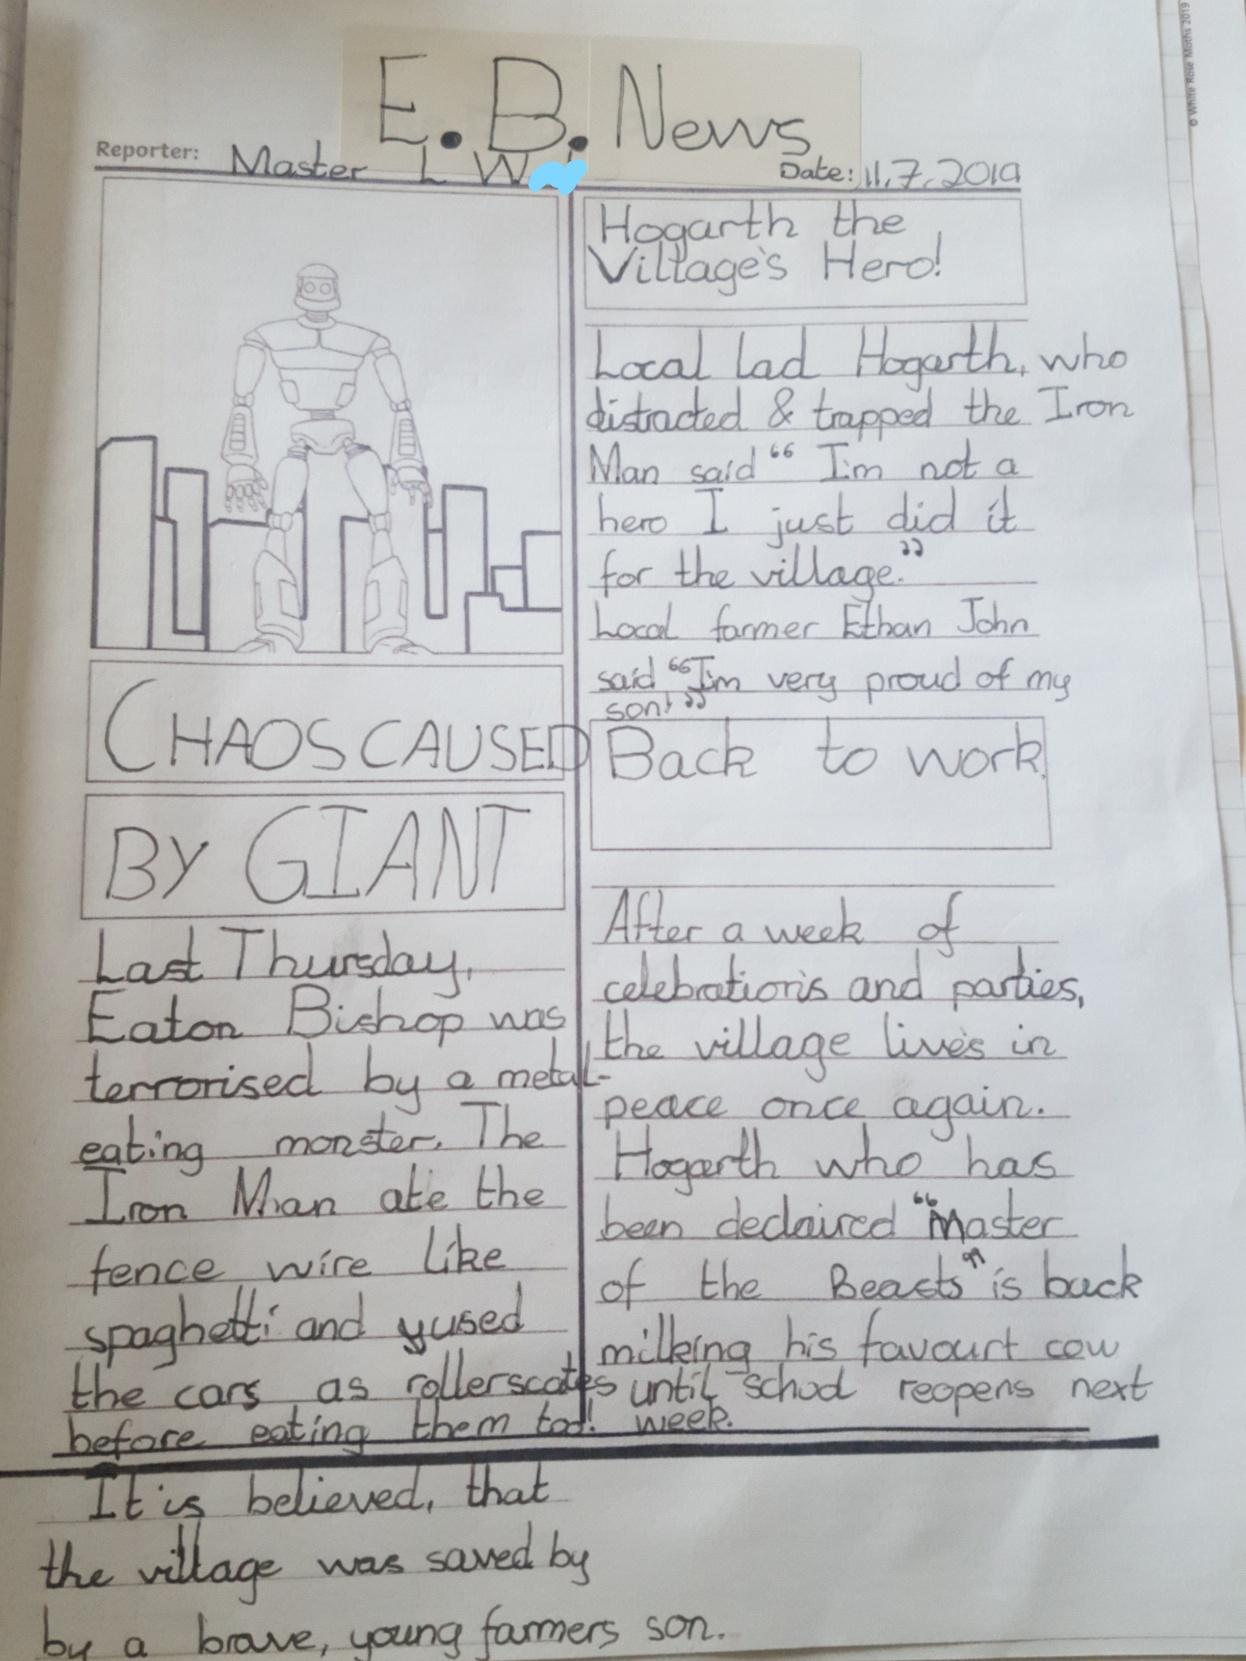 © White Rose Maths 2019
E.B. News
Reporter: Master L W
Date: 11.7.2019
CHAOS CAUSED
BY GIANT
Last Thursday,
Eaton Bishop was
terrorised by a metal-
eating monster. The
Iron Man ate the
fence wire like
spaghetti and yused
the cars as rollerscates
before eating them too!
It is believed, that
the village was saved by
by a brave, young farmers son.
Hogarth the
Village's Hero!
Local lad Hogarth, who
distracted & trapped the Iron
Man said “ I'm not a
hero I just did it
for the village.”
Local farmer Ethan John
said “I'm very proud of my
son!”
Back to work.
After a week of
celebration's and parties,
the village live's in
peace once again.
Hogarth who has
been declaired “Master
of the Beasts” is back
milking his favourt cow
until school reopens next
week.